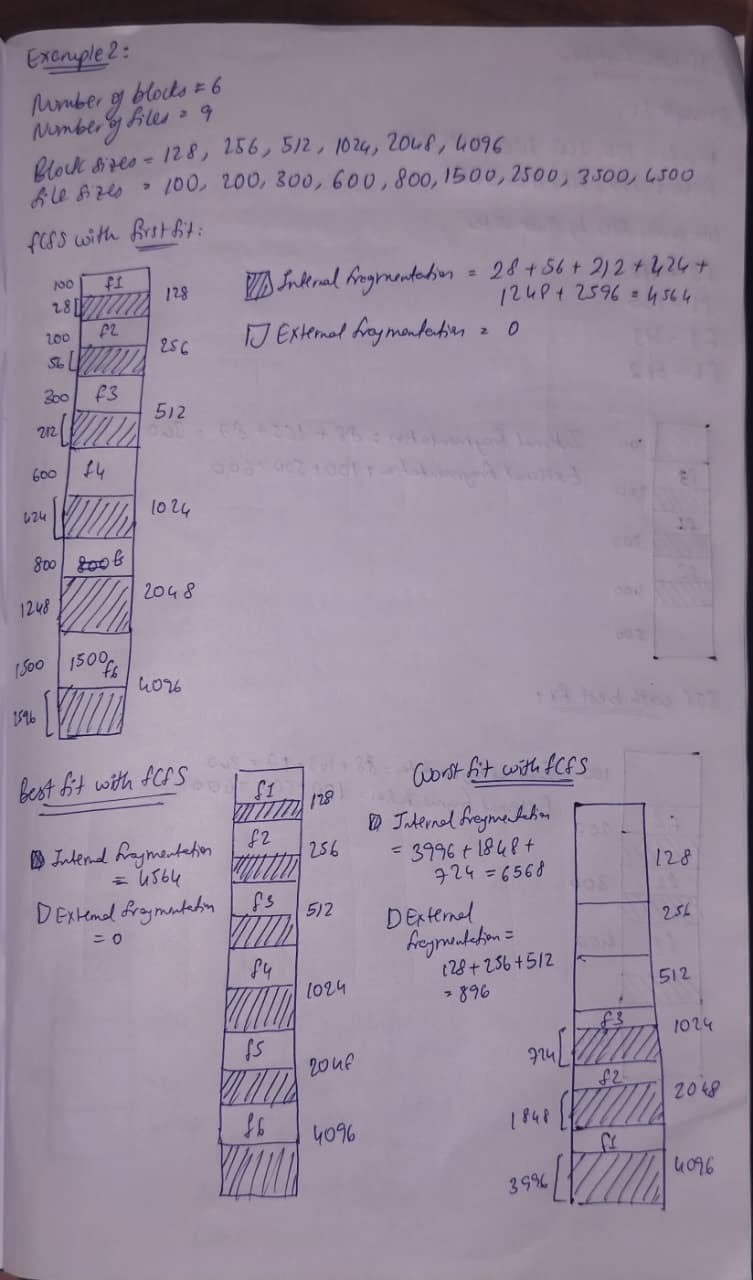 Example 2:
Number of blocks = 6
Number of files = 9
Block sizes = 128, 256, 512, 1024, 2048, 4096
file sizes = 100, 200, 300, 600, 800, 1500, 2500, 3500, 4500
fCfS with first fit:
100 f1
28 128
200 f2
56 256
300 f3
212 512
600 f4
424 1024
800 f5
1248 2048
1500 1500 f6
2596 4096
Internal fragmentation = 28 + 56 + 212 + 424 +
1248 + 2596 = 4564
External fragmentation = 0
Best fit with fCfS
Internal fragmentation
= 4564
External fragmentation
= 0
f1 128
f2 256
f3 512
f4 1024
f5 2048
f6 4096
Worst fit with fCfS
Internal fragmentation
= 3996 + 1848 +
724 = 6568
External
fragmentation =
128 + 256 + 512
= 896
128
256
512
f3 1024
724
f2 2048
1848
f1 4096
3996